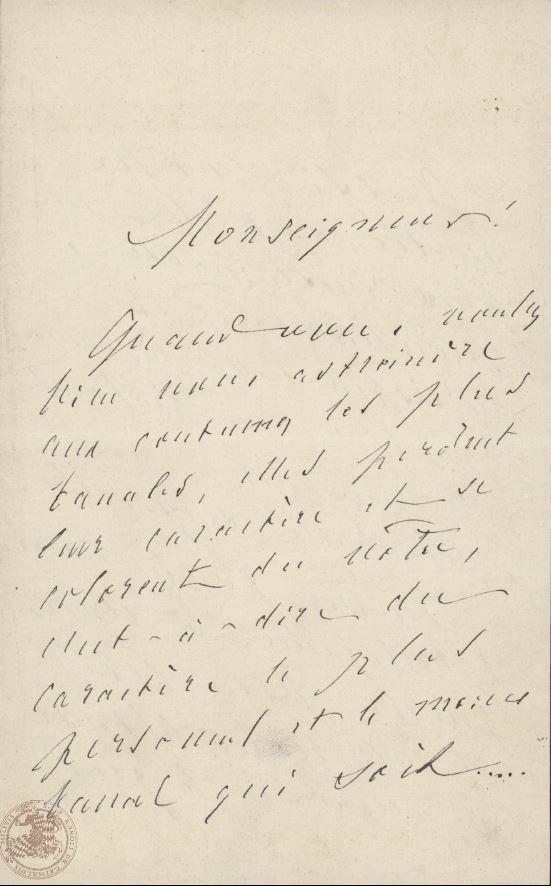 Monseigneur!
Quand vous voulez
bien vous astreindre
aux coutumes les plus
banales, elles perdent
leur caractère et se
colorent du vôtre,
c'est-à-dire du
caractère le plus
personnel et le moins
banal qui soit.....